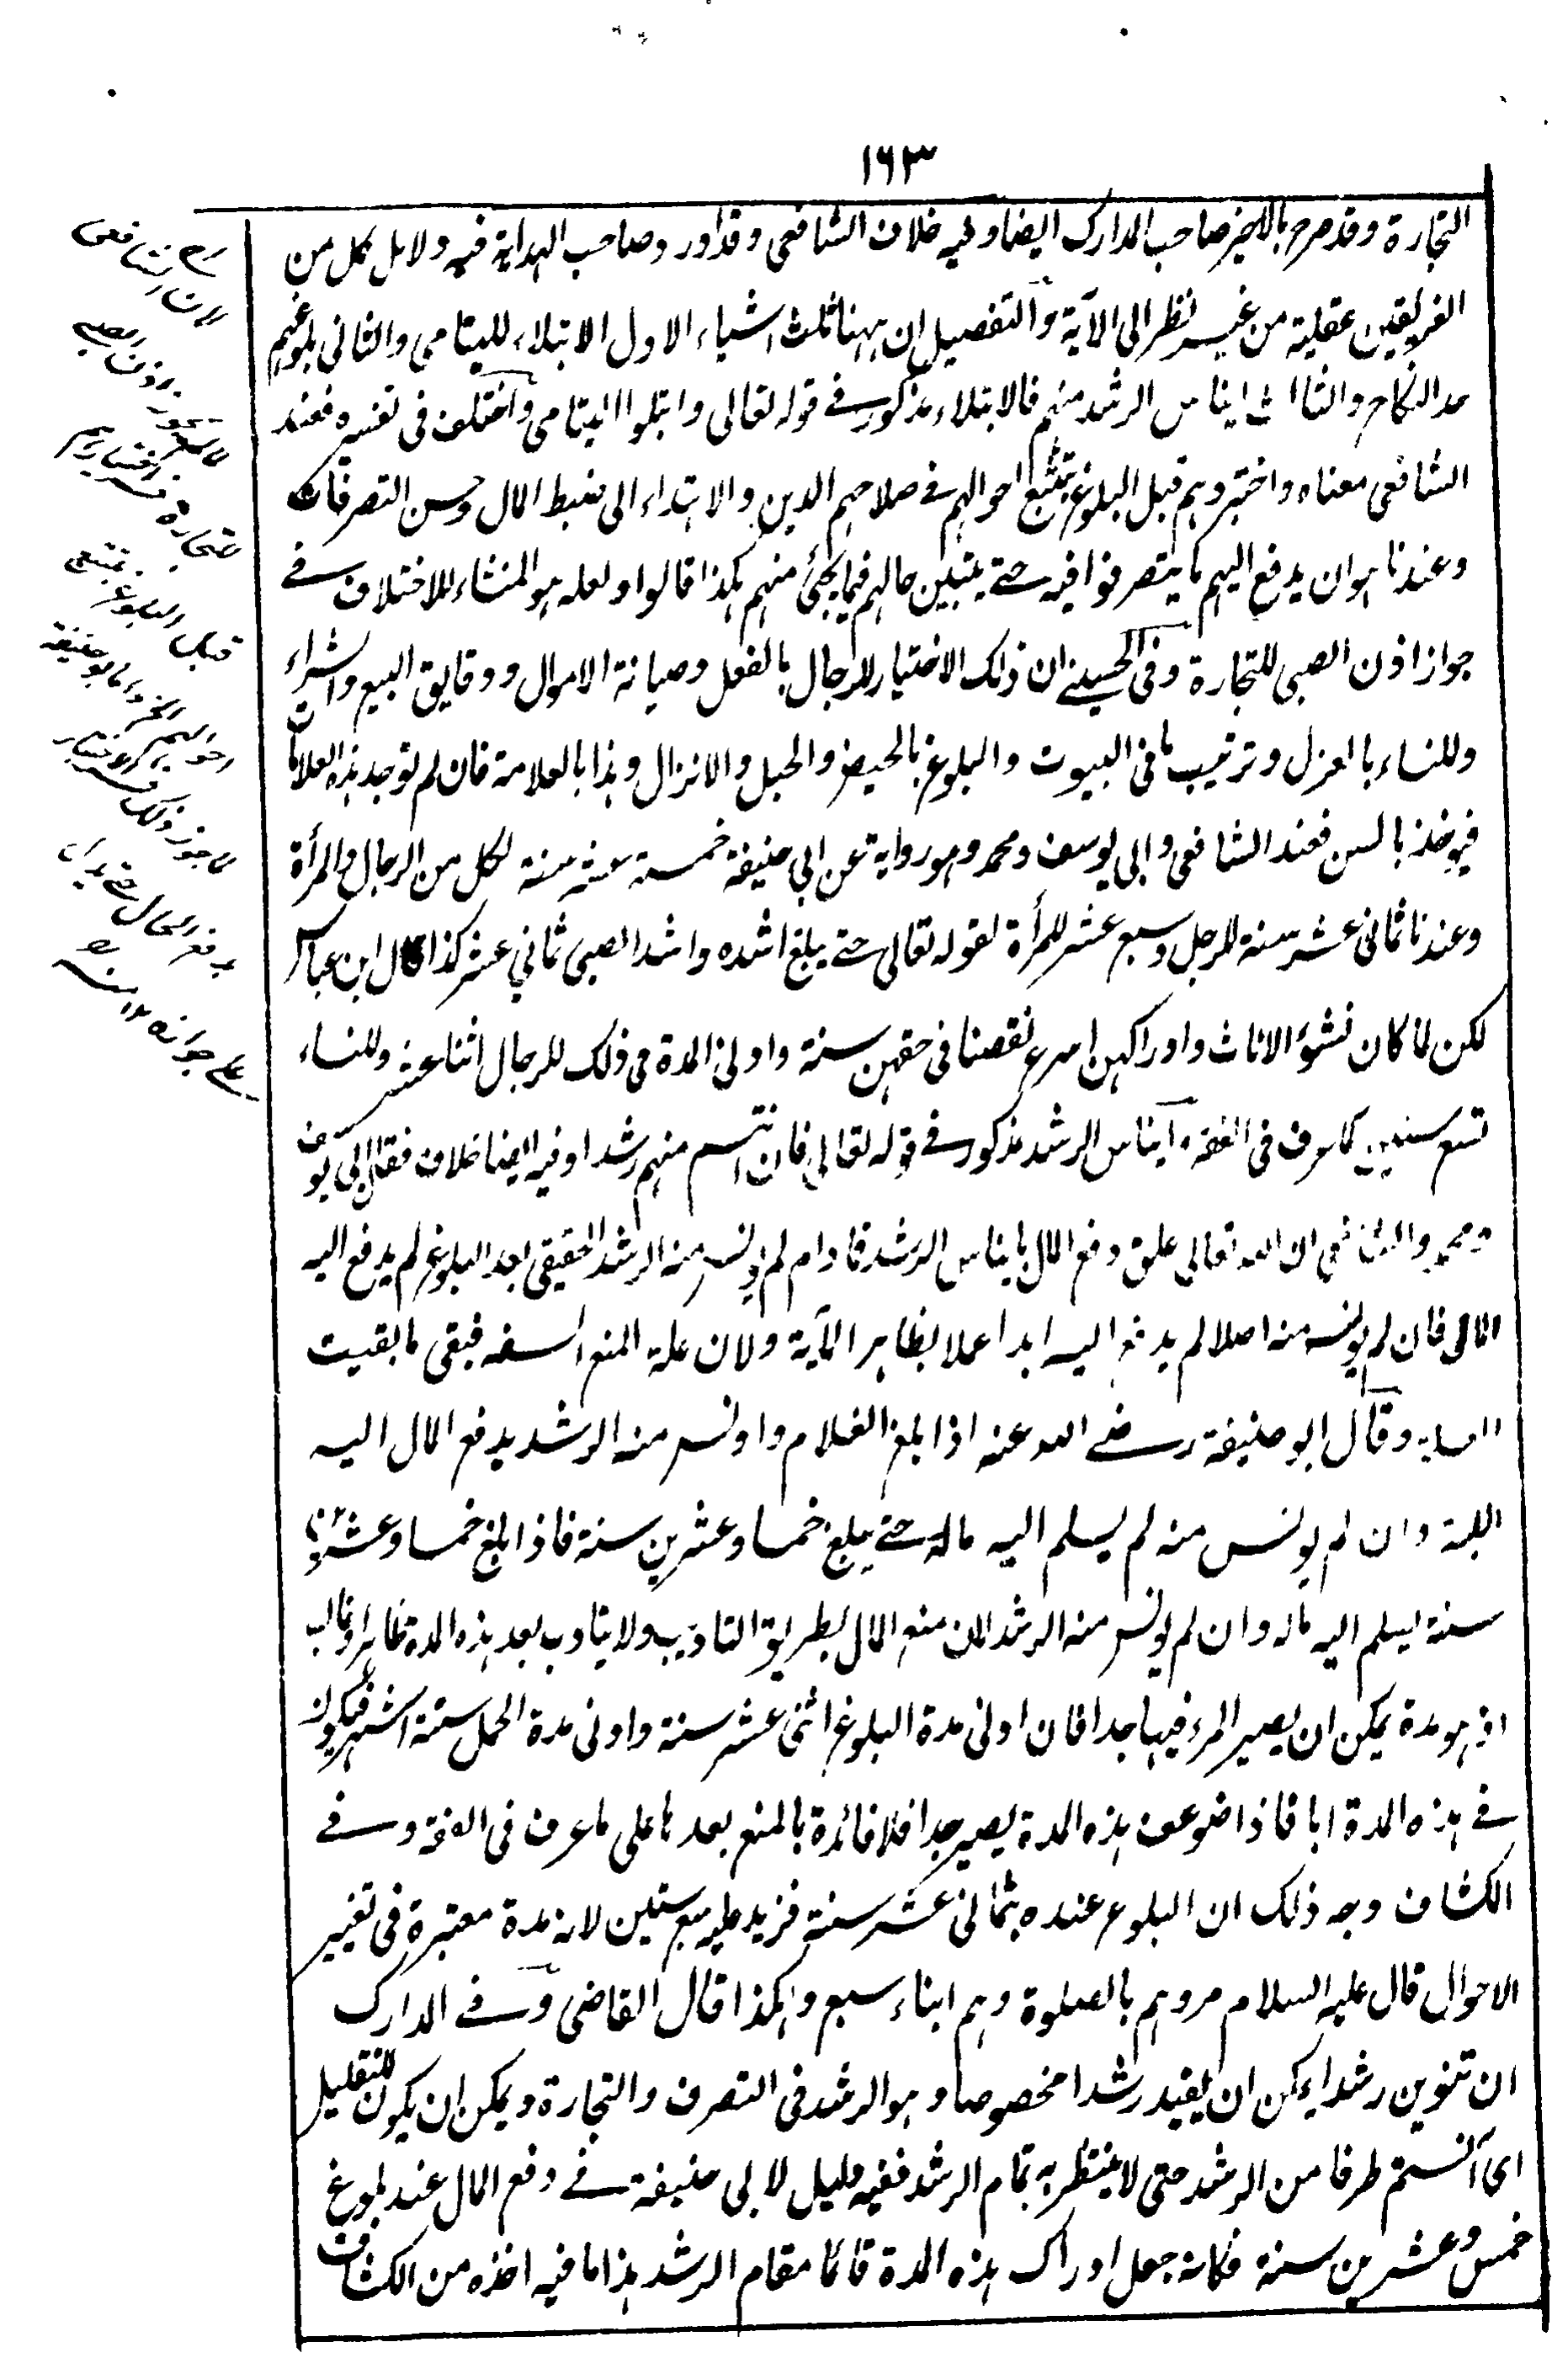 ١٦٣
التجارة وقد صرح بالاخير صاحب المدارك ايضا وفيه خلاف الشافعى وقد اورد صاحب الهداية فيه دلائل لكل من
الفريقين عقلية من غير نظر الى الآية والتفصيل ان ههنا ثلث اشياء الاول الابتلاء لليتامى والثانى بلوغهم
حد النكاح والثالث ايناس الرشد منهم فالابتلاء مذكور فى قوله تعالى وابتلوا اليتامى واختلف فى تفسيره فعند
الشافعى معناه واختبروهم قبل البلوغ بتتبع احوالهم فى صلاحهم الدين والاهتداء الى ضبط المال وحسن التصرفات
وعندنا هو ان يدفع اليهم ما يتصرفوا فيه حتى يتبين حالهم فيما يجئ منهم هكذا قالوا ولعله هو المنشاء للاختلاف فى
جواز اذن الصبى للتجارة وفى الحسينى ان ذلك الاختيار للرجال بالفعل وصيانة الاموال ودقايق البيع والشراء
وللنساء بالغزل وترتيب ما فى البيوت والبلوغ بالحيض والحبل والانزال وهذا بالعلامة فان لم توجد هذه العلامات
فيوخذ بالسن فعند الشافعى وابى يوسف ومحمد وهو رواية عن ابى حنيفة خمسة عشر سنة لكل من الرجال والمرأة
وعندنا ثمانى عشر سنة للرجل وسبع عشر للمرأة لقوله تعالى حتى يبلغ اشده واشد الصبى ثمانى عشر كذا قال ابن عباس
لكن لما كان نشؤ الاناث وادراكهن اسرع نقصنا فى حقهن سنة وادنى المدة فى ذلك للرجال اثنا عشر وللنساء
تسع سنين كما عرف فى الفقه وايناس الرشد مذكور فى قوله تعالى فان آنستم منهم رشدا وفيه ايضا خلاف فقال ابى يوسف
ومحمد والشافعى ان الله تعالى علق دفع المال بايناس الرشد فما دام لم يونس منه الرشد الحقيقى بعد البلوغ لم يدفع اليه
المال فان لم يونس منه اصلا لم يدفع اليه ابدا عملا بظاهر الآية ولان علة المنع السفه فيبقى ما بقيت
العلة وقال ابو حنيفة رضى الله عنه اذا بلغ الغلام واونس منه الرشد يدفع المال اليه
البتة وان لم يونس منه لم يسلم اليه ماله حتى يبلغ خمسا وعشرين سنة فاذا بلغ خمسا وعشرين
سنة يسلم اليه ماله وان لم يونس منه الرشد لان منع المال بطريق التاديب ولا يتادب بعد هذه المدة ظاهرا وغالبا
اذ هو مدة يمكن ان يصير المرء فيها جدا فان ادنى مدة البلوغ اثنى عشر سنة وادنى مدة الحمل ستة اشهر فيكون
فى هذه المدة ابا فاذا ضوعف هذه المدة يصير جدا فلا فائدة بالمنع بعدها على ما عرف فى الفقه وفى
الكشاف وجه ذلك ان البلوغ عنده بثمانى عشر سنة فزيد عليه سبع سنين لانه مدة معتبرة فى تغيير
الاحوال قال عليه السلام مروهم بالصلوة وهم ابناء سبع وهكذا قال القاضى وفى المدارك
ان تنوين رشدا يمكن ان يفيد رشدا مخصوصا وهو الرشد فى التصرف والتجارة ويمكن ان يكون للتقليل
اى آنستم طرفا من الرشد حتى لا ينتظر به تمام الرشد ففيه دليل لابى حنيفة فى دفع المال عند بلوغ
خمس وعشرين سنة فكانه جعل ادراك هذه المدة قائما مقام الرشد هذا ما فيه اخذه من الكشاف
لان الشافعى
لا يجوز اذن الصبى
للتجارة فسر اختبارهم
قبل البلوغ بتتبع
احوالهم الخ واما ابو حنيفة
لما جوز ذلك فسر الاختبار
بدفع المال حتى يدل
على جوازه ١٢ منه